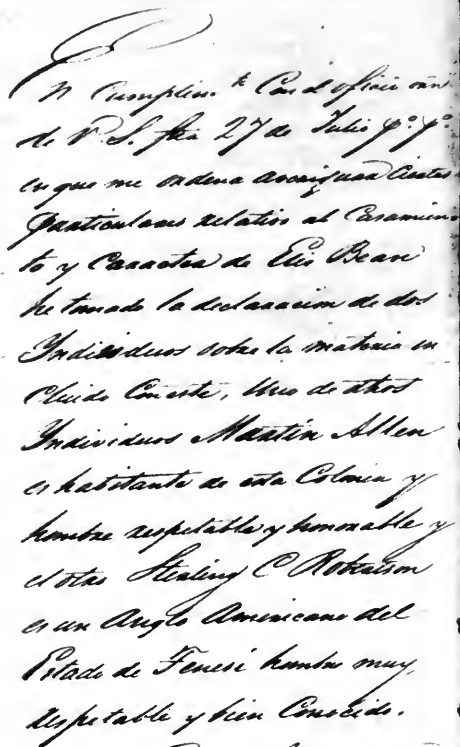 En Cumplim.to Con el oficio
de V. S. fha 27 de Julio pº. pº.
en que me ordena averiguar Ciertas
particulares relatios al Casamien
to y Caracter de Elis Bean
he tomado la declaracion de dos
Individuos sobre la materia in
cluido Con este, Uno de ahos
Individuos Martin Allen
es habitante de esta Colonia y
hombre respetable y honorable y
el otro Sterling C Robertson
es un Anglo Americano del
Estado de Tenesi hombre muy
respetable y bien Conocido.